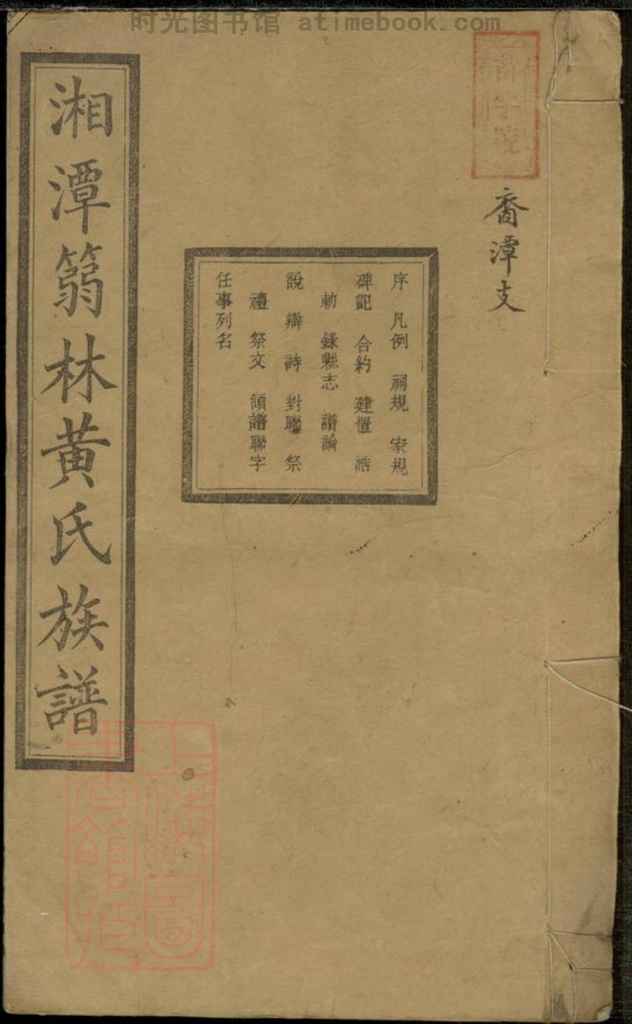 时光图书馆 atimebook.com
裔潭支
序 凡例 祠規 家規
碑記 合約 建置 誥
勅 錄縣志 譜論
說 辯 詩 對聯 祭
禮 祭文 領譜聯字
任事列名
湘潭篛林黃氏族譜